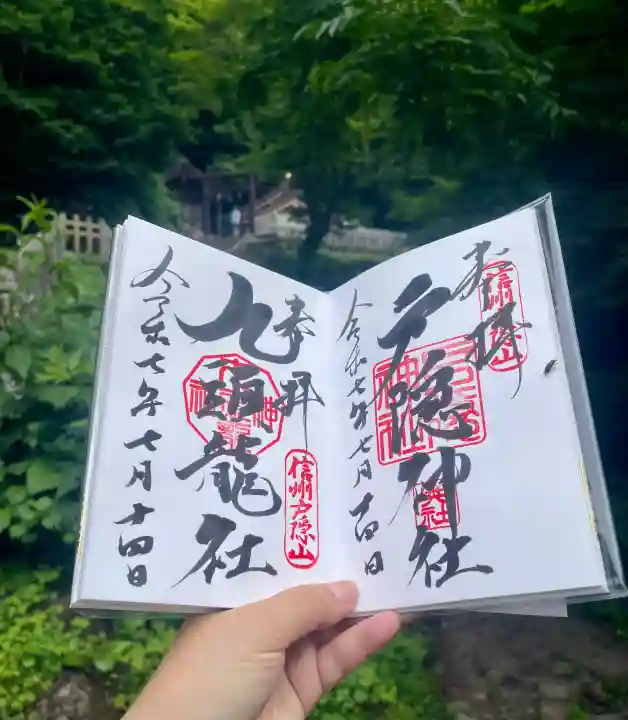 奉拝
信州戸隠山
戸隠神社
奥社
令和七年七月十四日
奉拝
信州戸隠山
九頭龍社
令和七年七月十四日